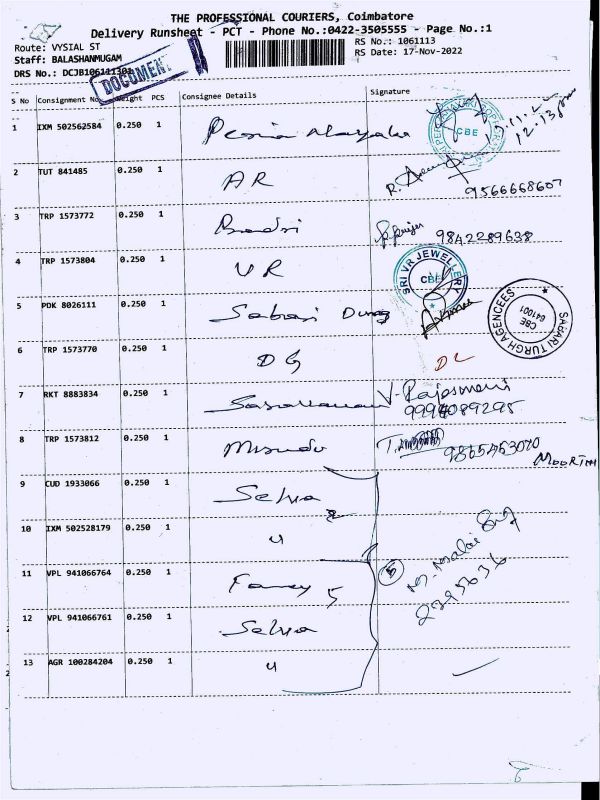 THE PROFESSIONAL COURIERS, Coimbatore
Delivery Runsheet - PCT - Phone No.:0422-3505555 - Page No.:1
Route: VYSIAL ST
RS No.: 1061113
Staff: BALASHANMUGAM
RS Date: 17-Nov-2022
DRS No.: DCJB106111301
DOCUMENT
S No Consignment No. Weight PCS Consignee Details Signature
1 IXM 502562584 0.250 1
CBE
12.13pm
2 TUT 841485 0.250 1 AR
9566668607
3 TRP 1573772 0.250 1 Badri
9842289638
4 TRP 1573804 0.250 1 VR
SRI VR JEWELLERY
CBE
5 PDK 8026111 0.250 1
SABARI TURGH AGENCEES
CBE
641001
6 TRP 1573770 0.250 1 DG
7 RKT 8883834 0.250 1 Saravanan V. Rajasmani
9994089295
8 TRP 1573812 0.250 1
9865463070
MOORTHI
9 CUD 1933066 0.250 1 Selva
10 IXM 502528179 0.250 1 "
11 VPL 941066764 0.250 1 Fancy
5
2395636
12 VPL 941066761 0.250 1 Selva
13 AGR 100284204 0.250 1 "